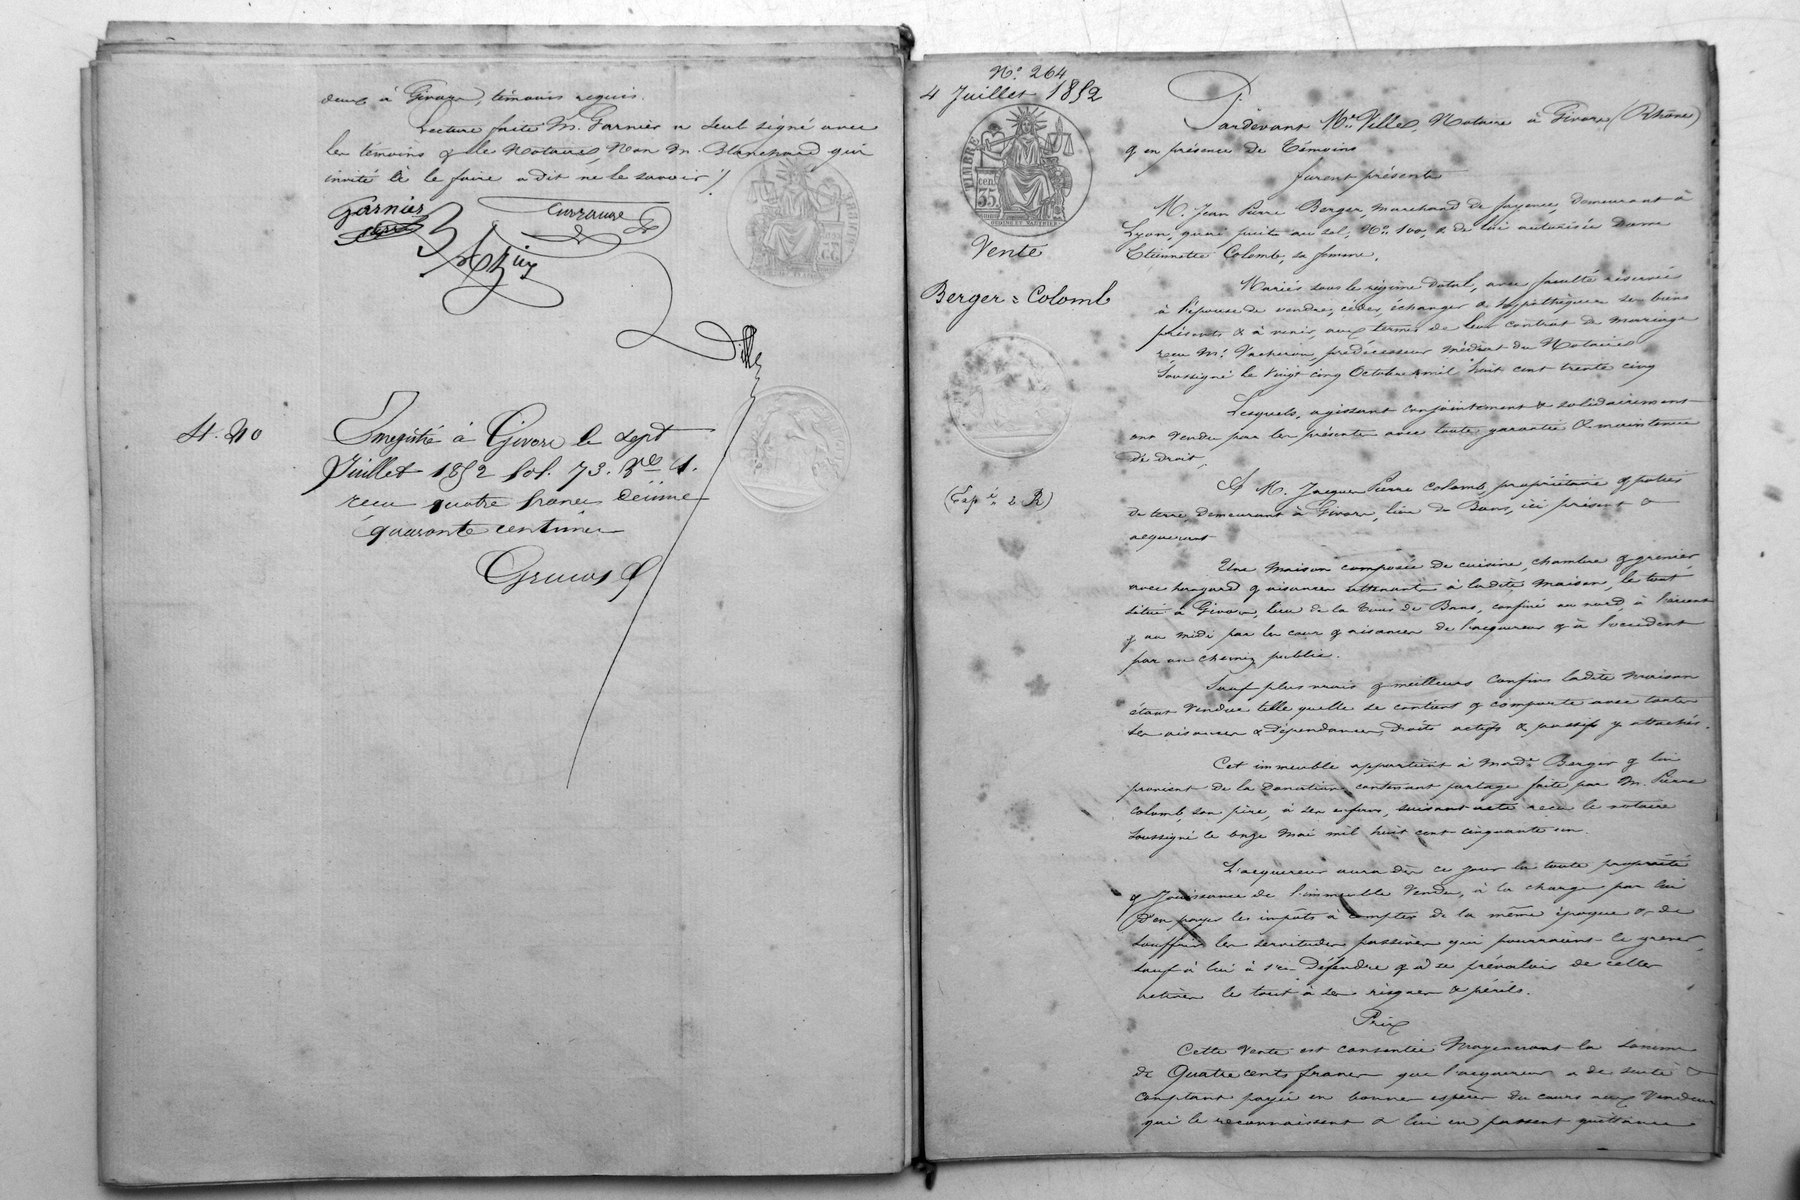 deux à Givors, témoins requis.
Lecture faite M. Garnier a seul signé avec
les témoins & le Notaire, Non M. Blanchard qui
invité à le faire a dit ne le savoir ./.
Garnier
Ville
4. 40
Enregistré à Givors le sept
Juillet 1852 fol. 73. Rco
reçu quatre francs décime
quarante centimes
N.o 264
4 Juillet 1852
TIMBRE
35
Vente
Berger = Colomb
Pardevant Me Ville, Notaire à Givors (Rhône)
& en présence de Témoins
furent présents
M. Jean Pierre Berger, marchand de fayence, demeurant à
Lyon, quai puits au sel, No. 100, & de lui autorisée Dame
Etiennette Colomb, sa femme,
Mariés sous le régime dotal, avec faculté réservée
à l'épouse de vendre, céder, échanger & hypothéquer ses biens
présents & à venir, aux termes de leur contrat de mariage
reçu Me Vacheron, prédécesseur médiat du Notaire
Soussigné le vingt cinq Octobre mil huit cent trente cinq
Lesquels, agissant conjointement & solidairement
ont vendu par les présentes avec toute garantie & maintenue
de droit,
A M. Jacques Pierre Colomb, propriétaire & potier
de terre, demeurant à Givors, lieu de Bans, ici présent &
acquérant
Une maison composée de cuisine, chambre & grenier
avec hangard & aisances attenant à ladite maison, le tout
situé à Givors, lieu de la Tour de Bans, confiné au nord, à l'orient
& au midi par les cour & aisances de l'acquéreur & à l'occident
par un chemin public.
Sauf plus vrais & meilleurs confins ladite maison
étant vendue telle qu'elle se contient & comporte avec toutes
ses aisances & dépendances, droits actifs & passifs y attachés.
Cet immeuble appartient à Made Berger & lui
provient de la donation contenant partage faite par M. Pierre
Colomb, son père, à ses enfans, suivant acte reçu le notaire
soussigné le onze mai mil huit cent cinquante un.
L'acquéreur aura dès ce jour la toute propriété
& jouissance de l'immeuble vendu, à la charge par lui
d'en payer les impôts à compter de la même époque & de
souffrir les servitudes passives qui pourraient le grever,
sauf à lui à s'en défendre & à se prévaloir de celles
actives le tout à ses risques & périls.
Prix
Cette vente est consentie Moyennant la somme
de Quatre cents francs que l'acquéreur a de suite &
comptant payée en bonnes espèces du cours aux Vendeurs
qui le reconnaissent & lui en passent quittance